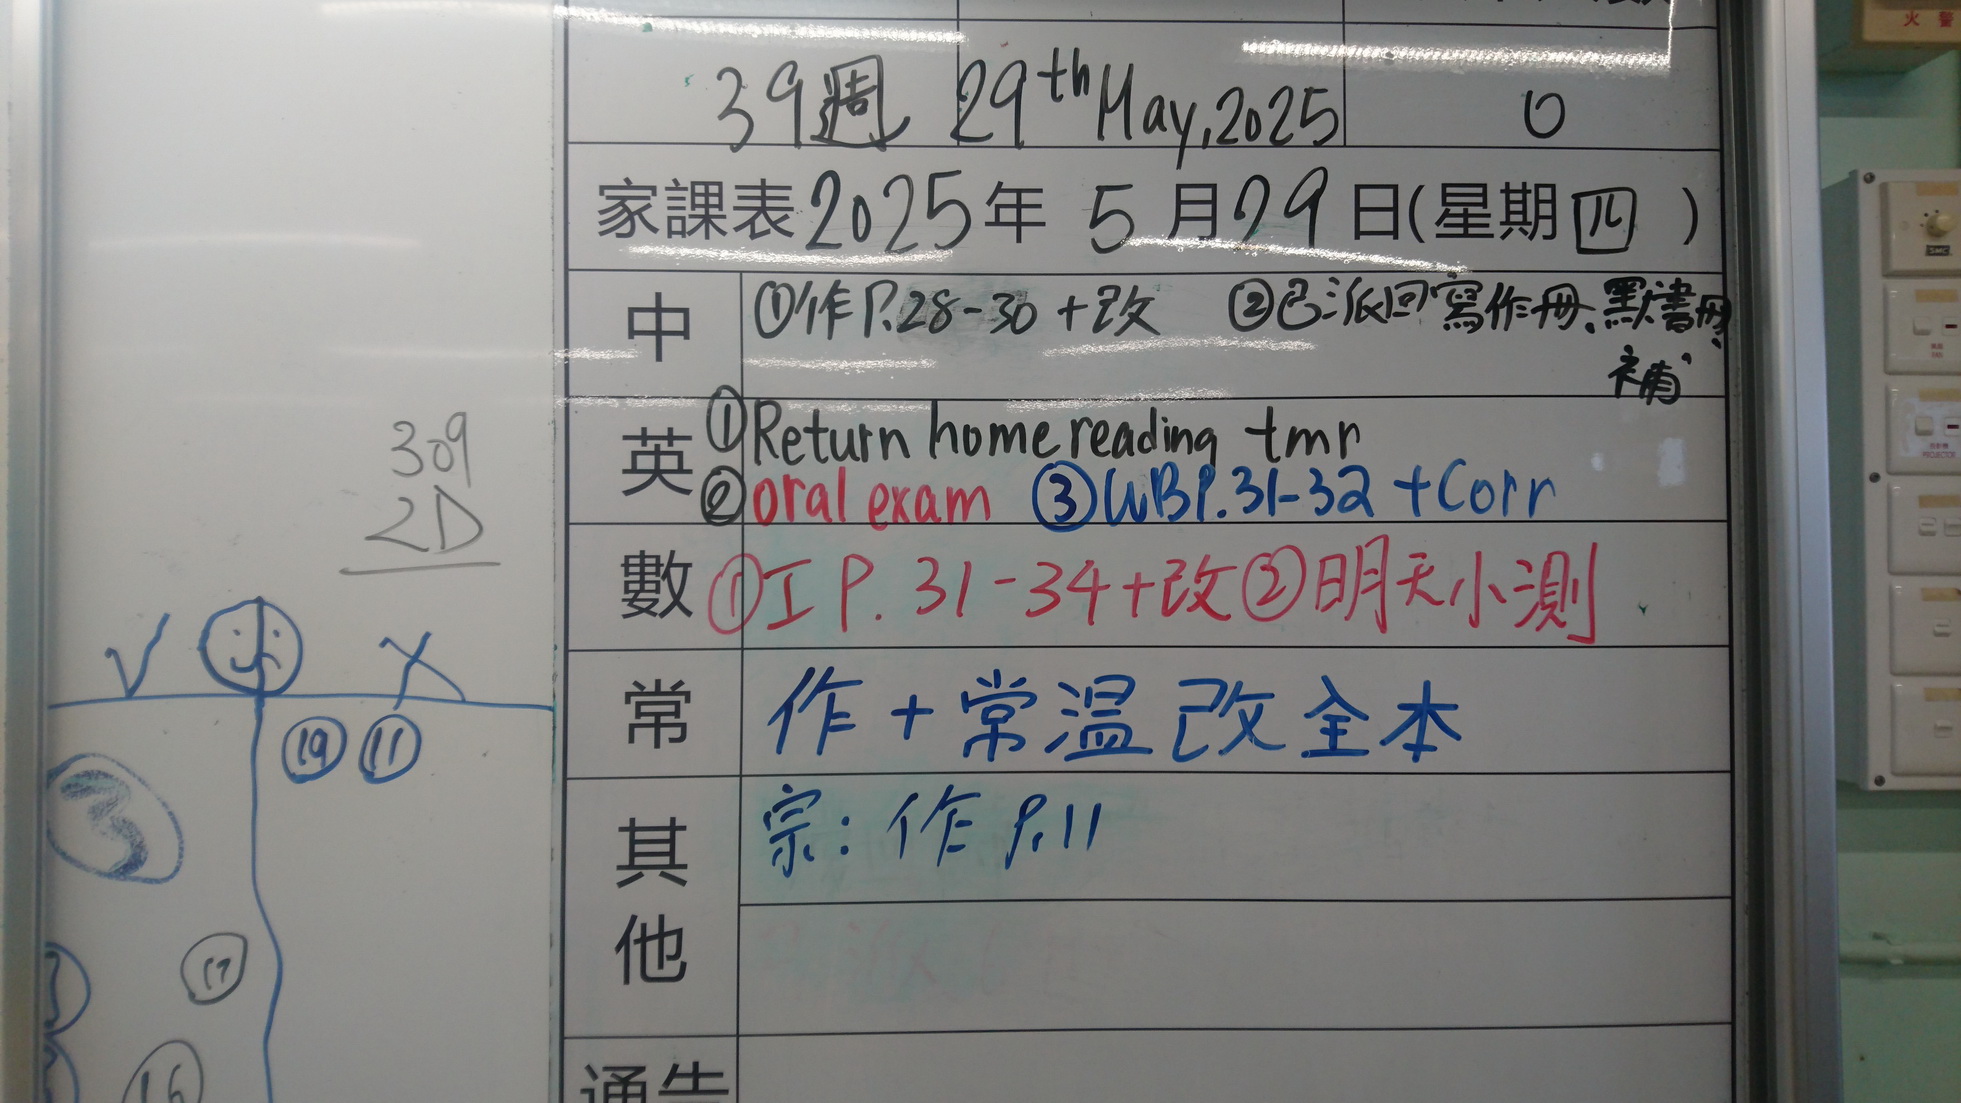 火 警
39週 29th May, 2025 0
家課表 2025年 5 月 29 日(星期 四 )
中 ①作 P.28-30 + 改 ②已派回寫作冊、默書冊、
補
英 ①Return home reading tmr
②oral exam ③WB P.31-32 + Corr
309
2D
數 ①工 P. 31-34+改 ②明天小測
常 作 + 常溫 改全本
⑲ ⑪
其他 宗: 作 P.11
17
16
通告